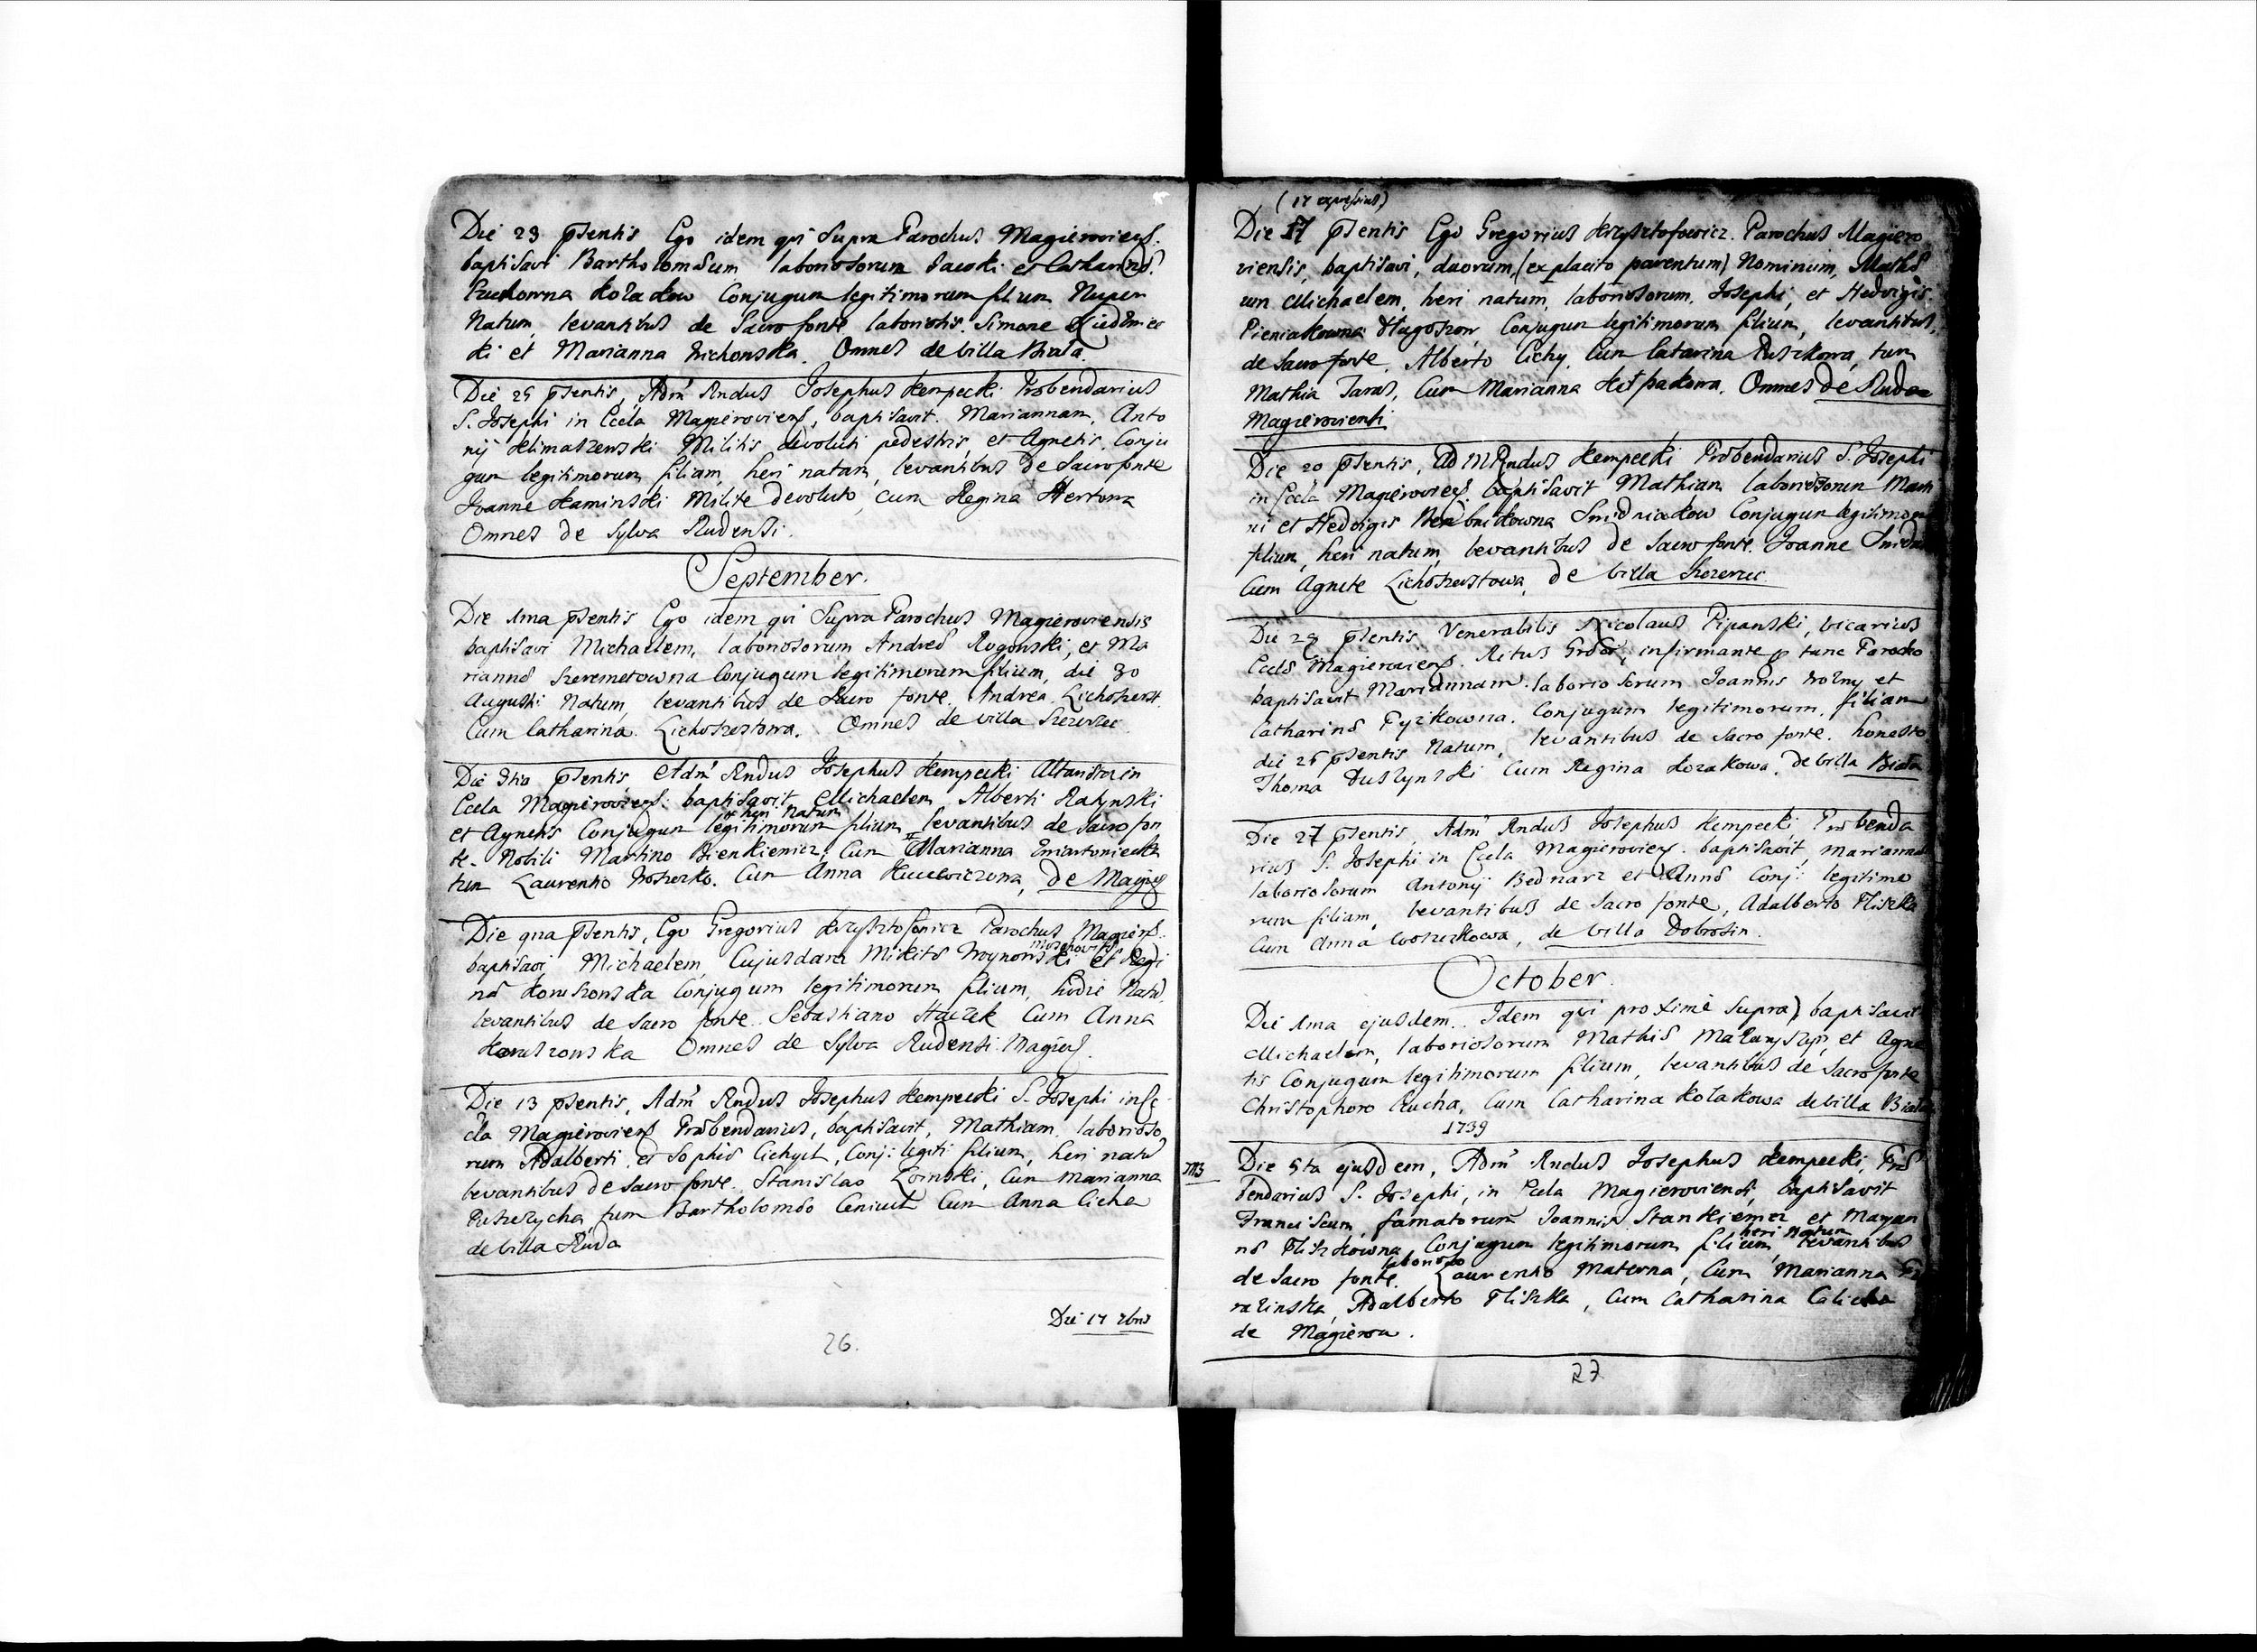 Die 23 psentis Ego idem qui Supra Parochus Magieroviens.
baptisavi Bartholomæum laboriosorum Jacobi et Catharinæ
Kozakow Conjugum legitimorum filium Nuper
Natum, levantibus de Sacro fonte laboriosis. Simone
ki et Marianna Wichonska. Omnes de villa Biała.
Die 25 psentis, Adm Rndus Josephus Kempecki Præbendarius
S. Josephi in Eccla Magieroviens, baptisavit Mariannam, Anto
nij Klimaszewski Militis devoluti pedestris, et Agnetis Conju
gum legitimorum filiam, heri natam, levantibus de Sacro fonte
Joanne Kaminski Milite devoluto, cum Regina
Omnes de Sylva Rudensi.
September.
Die 1ma psentis Ego idem qui Supra Parochus Magieroviensis
baptisavi Michaelem, laboriosorum Andreæ Rogowski, et Ma
riannæ Szeremetowna Conjugum legitimorum filium, die 30
Augusti Natum, levantibus de Sacro fonte. Andrea Lichoszerst
Cum Catharina Lichoszerstowa. Omnes de villa Szczerzec
Die psentis Adm Rndus Josephus Kempecki Altarista in
Eccla Magieroviens. baptisavit Michaelem Alberti Ratynski
heri Natum
et Agnetis Conjugum legitimorum filium levantibus de Sacro fon
te. Nobili Martino Bienkiewicz, Cum Marianna
tum Laurentio Woszczko. Cum Anna de Magier
Die 9na psentis, Ego Gregorius Krzysztofowicz Parochus Magiers.
baptisavi Michaelem, Cujusdam Mikitæ Woynowski et Regi
næ Konuszonska Conjugum legitimorum filium, hodie Natū
levantibus de Sacro fonte. Sebastiano Cum Anna
Konuszonska Omnes de Sylva Rudensi Magiers.
Die 13 psentis, Adm Rndus Josephus Kempecki S. Josephi in Ec
cla Magieroviens Præbendarius, baptisavit, Mathiam laborioso
rum Adalberti et Sophiæ Cichych, Conj: legiti filium, heri natū
levantibus de Sacro fonte. Stanislao Loinski, Cum Marianna
tum Bartholomæo Cum Anna Licha
de villa Ruda
Die 17 7bris
26.
(17 expressius)
Die 17 psentis Ego Gregorius Krzysztofowicz. Parochus Magiero
viensis, baptisavi, duorum, (ex placito parentum) Nominum, Mathæ
um Michaelem, heri natum, laboriosorum. Josephi et Hedvigis
Pieniakowna Długoszow, Conjugum legitimorum filium, levantibus,
de Sacro fonte. Alberto Cichy. Cum Catarina Puszkowa, tum
Mathia Taras, Cum Marianna Omnes de Ruda
Magieroviensi
Die 20 psentis, Ad M Rndus Kempecki Præbendarius S. Josephi
in Eccla Magieroviens. baptisavit Mathiam laboriosorum Marti
ni et Hedvigis Conjugum legitimoru
filium, heri natum, levantibus de Sacro fonte. Joanne
Cum Agnete Lichoszerstowa, de villa Szczerzec
Die 28 psentis, Venerabilis Nicolaus Pipanski, vicarius
Eccls Magieroviens. Ritus infirmante p tunc Parocho
baptisavit Mariannam laboriosorum Joannis Wozny et
Catharinæ Pyzikowna. Conjugum legitimorum, filiam
die 26 psentis Natum, levantibus de Sacro fonte. honesto
Thoma Duszynski Cum Regina Kozakowa. de villa Biała
Die 27 psentis, Adm Rndus Josephus Kempecki, Præbenda
rius S. Josephi in Eccla Magieroviens. baptisavit, Marianna
laboriosorum Antonij Bednarz et Annæ Conj: legitimo
rum filiam, levantibus de Sacro fonte, Adalberto Fliszka
Cum Anna Woszczkowa, de villa Dobrosin.
October.
Die 1ma ejusdem. Idem qui proximè Supra) baptisavit
Michaelem, laboriosorum Mathiæ et Agne
tis Conjugum legitimorum filium, levantibus de Sacro fonte
Christophoro Rucha, Cum Catharina Kołakowa de villa Biała
1739
Die 5ta ejusdem, Adm Rndus Josephus Kempecki, Præ
bendarius S. Josephi, in Eccla Magieroviensi, baptisavit
Franciscum, famatorum Joannis Stankiewicz et Maryan
heri natum
næ Fliszkowna Conjugum legitimorum filium, levantibus
laborioso
de Sacro fonte. Laurentio Materna, Cum Marianna
Adalberto Fliszka, Cum Catharina
de Magierow.
27